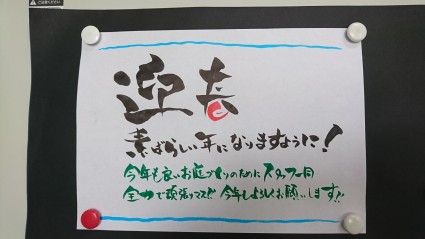 ご注意ください
迎春
素ばらしい年になりますように!
今年も良いお庭づくりのためにスタッフ一同
全力で頑張りマス!! 今年もよろしくお願いします!!